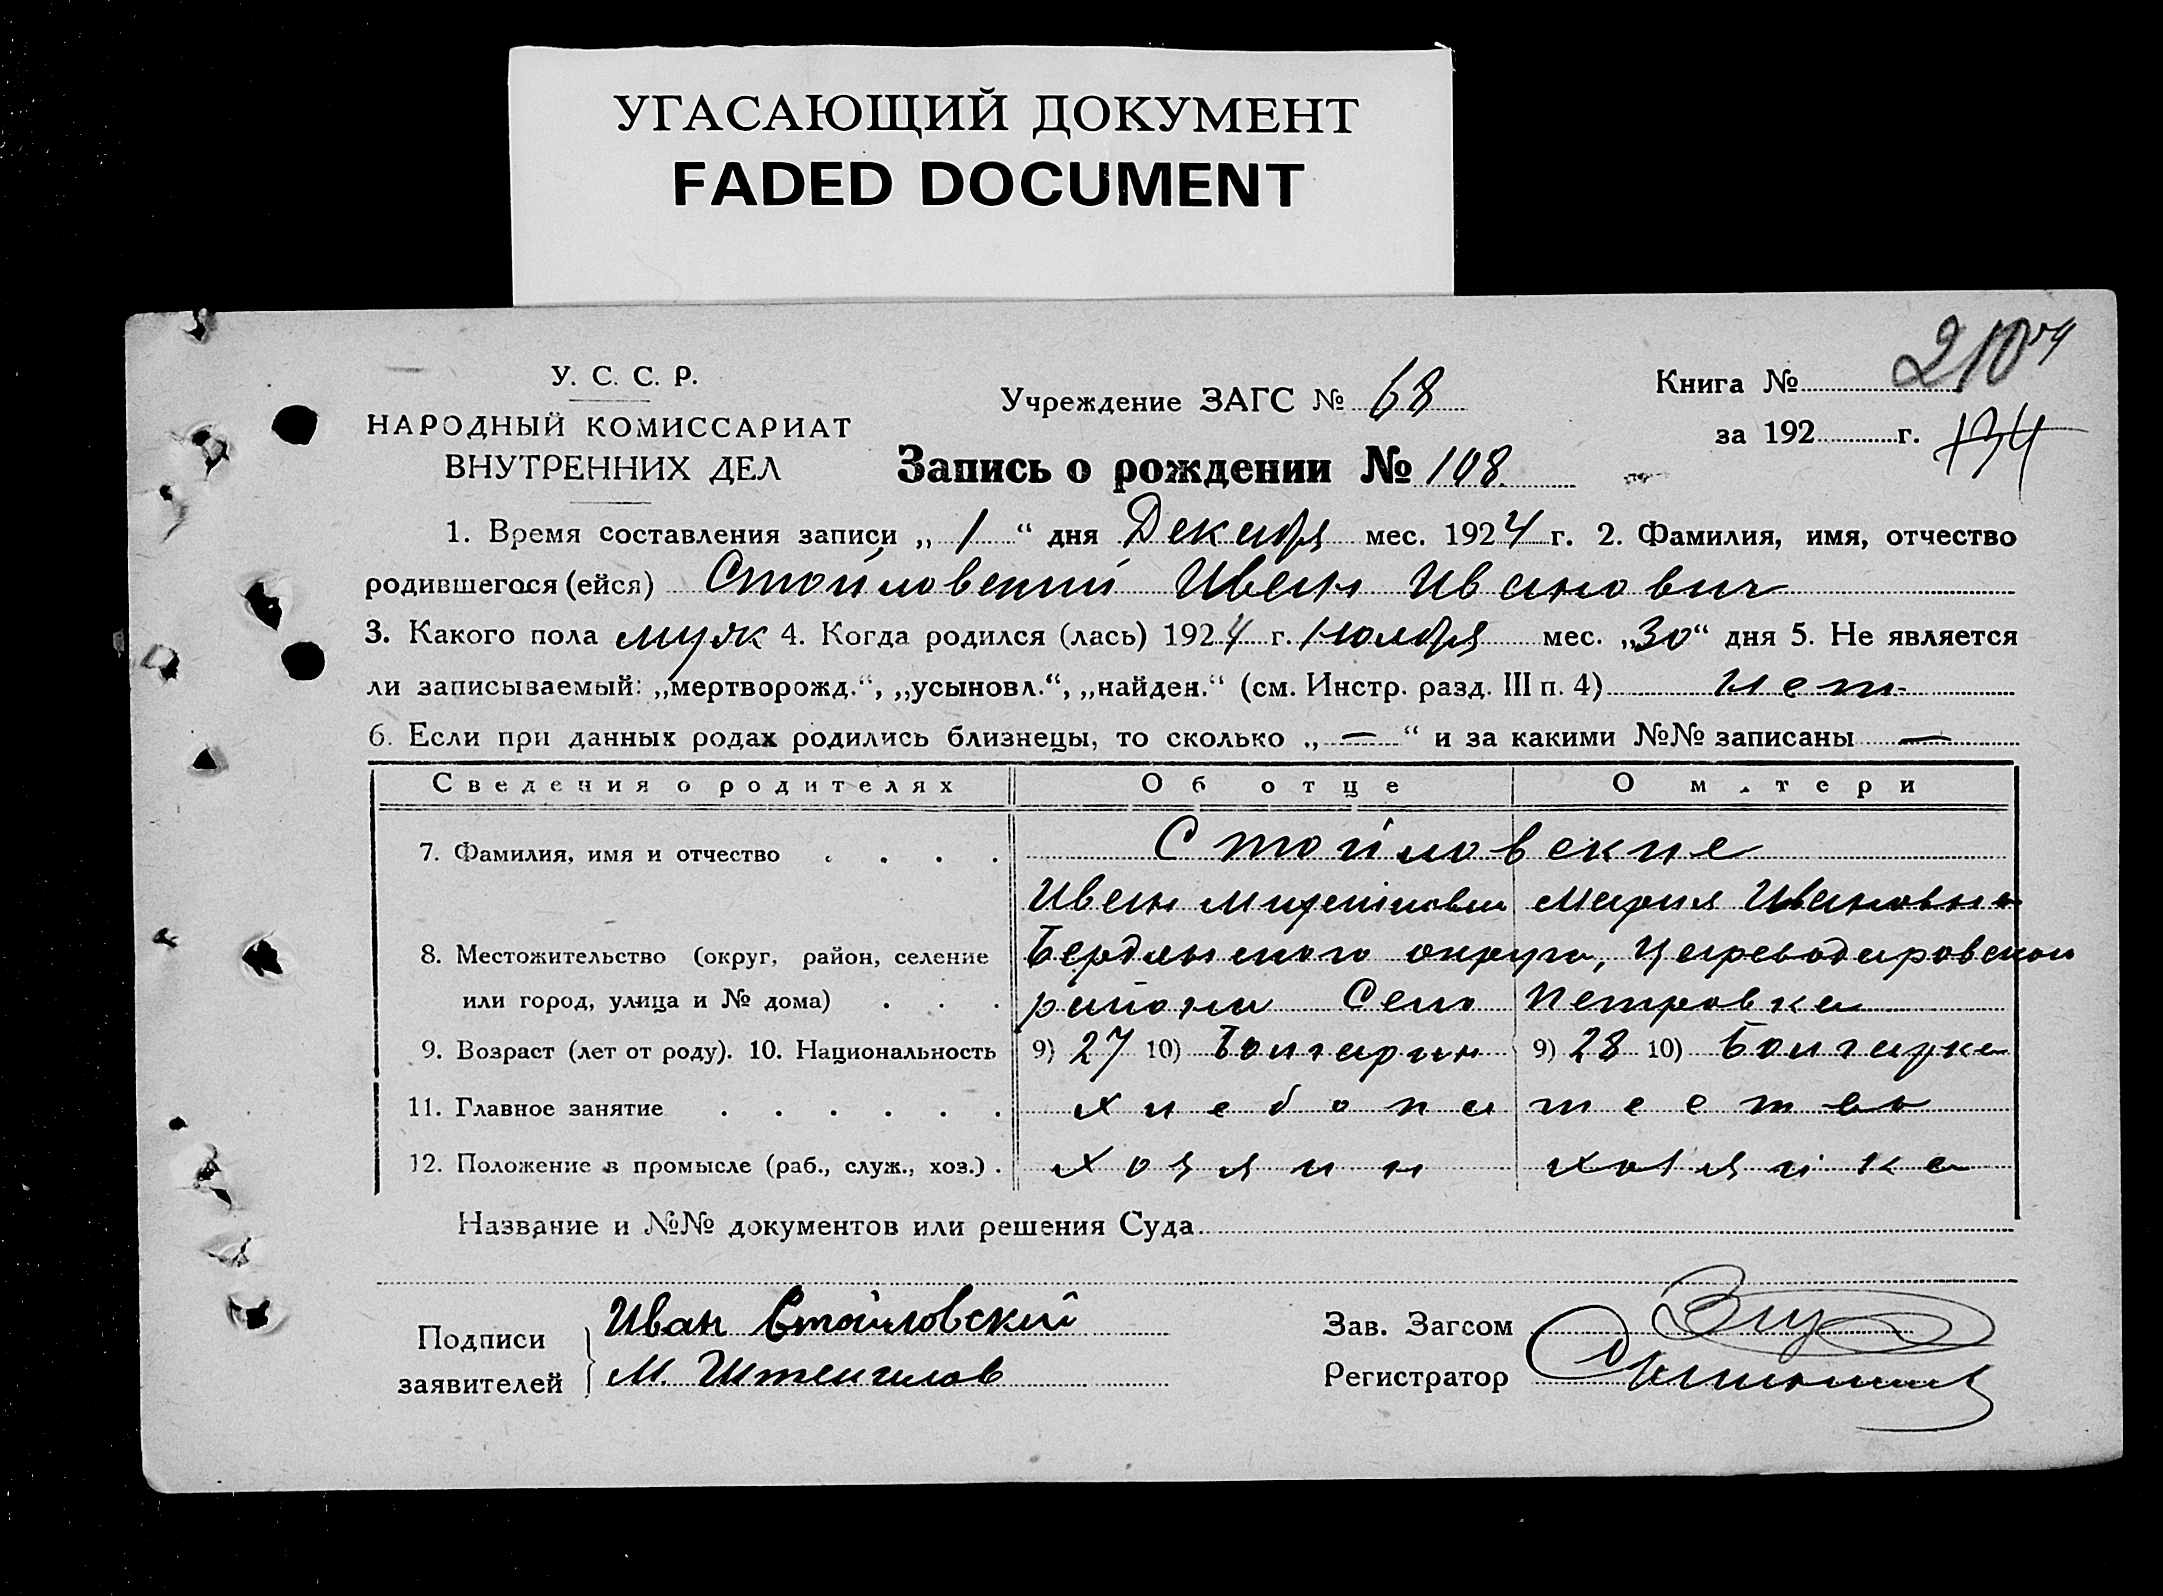 УГАСАЮЩИЙ ДОКУМЕНТ
FADED DOCUMENT
210
У. С. С. Р.
НАРОДНЫЙ КОМИССАРИАТ
ВНУТРЕННИХ ДЕЛ
Учреждение ЗАГС № 68
Книга №
за 192 г. 134
Запись о рождении № 108.
1. Время составления записи „ 1 “ дня Декабря мес. 1924 г. 2. Фамилия, имя, отчество
родившегося (ейся) Стойловский Иван Иванович
3. Какого пола муж 4. Когда родился (лась) 1924 г. Ноября мес. „30“ дня 5. Не является
ли записываемый: „мертворожд.“, „усыновл.“, „найден.“ (см. Инстр. разд. III п. 4) нет
6. Если при данных родах родились близнецы, то сколько „ — “ и за какими №№ записаны —
Сведения о родителях Об отце О м тери
7. Фамилия, имя и отчество . . . . Стойловские
Иван Мария Ивановна
8. Местожительство (округ, район, селение Бердянского округа, Цареводаровского
или город, улица и № дома) . . . района Село Петровка
9. Возраст (лет от роду). 10. Национальность 9) 27 10) Болгарин 9) 28 10) Болгарка
11. Главное занятие . . . . . . хлебопашество
12. Положение в промысле (раб., служ., хоз.) . хозяин хозяйка
Название и №№ документов или решения Суда
Подписи Иван Стойловский
заявителей М.
Зав. Загсом
Регистратор